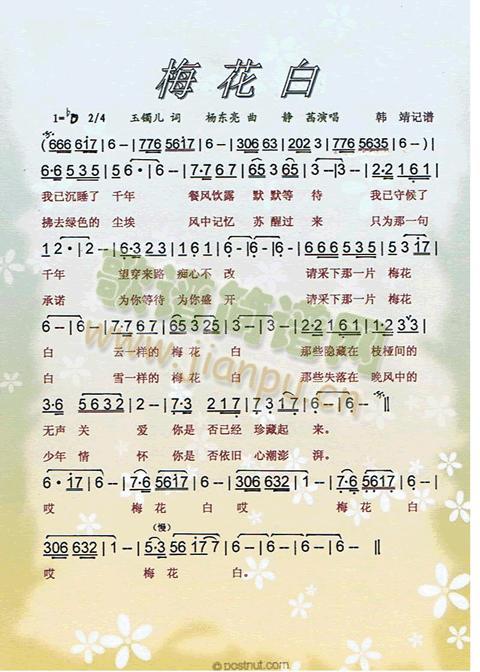 梅花白
1=♭D 2/4 玉镯儿 词 杨东亮 曲 静 茜演唱 韩 靖记谱
(666 617|6 –|776 5617|6 –|306 63|202 3|776 5635|6 – –|6 –)|
6·6 535|65·|6 – –|7·7 67|653 5|3 –|3 – –|2·2 161|
我已沉睡了 千年 餐风饮露 默默等 待 我已守候了
拂去绿色的 尘埃 风中记忆 苏醒过 来 只为那一句
12·|2 – –|6·3 23|6·5 65|6·|6 –|6 –|666 535|5 317|
千年 望穿来路 痴心不 改 请采下那一片 梅花
承诺 为你等待 为你盛 开 请采下那一片 梅花
6 –|6 –|7·7 67|65 325|3 –|3 –|2·2 161|1·2 33|
白 云一样的 梅花 白 那些隐藏在 枝桠间的
白 雪一样的 梅花 白 那些失落在 晚风中的
3·6 5632|2 – –|7·3 217|7 317|6 –|6 –|6 –|6 – –‖
无声 关 爱 你是 否已经 珍藏起 来。
少年 情 怀 你是 否依旧 心潮澎 湃。
6·17|6 – –|7·6 5617|6 –|306 632|1 –|7·6 5617|6 –|
哎 梅 花 白 哎 梅 花 白
(慢)
306 632|1 –|5·3 56 177|6 –|6 –|6 –|6 – –‖
哎 梅 花 白。
歌谱简谱网
www.jianpu.cn
© postnut.com